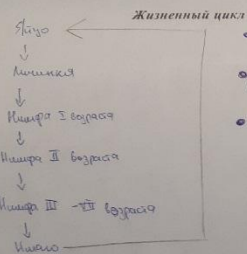 Жизненный цикл
Яйцо
Личинка
Нимфа I возраста
Нимфа II возраста
Нимфа III - VII возраста
Имаго